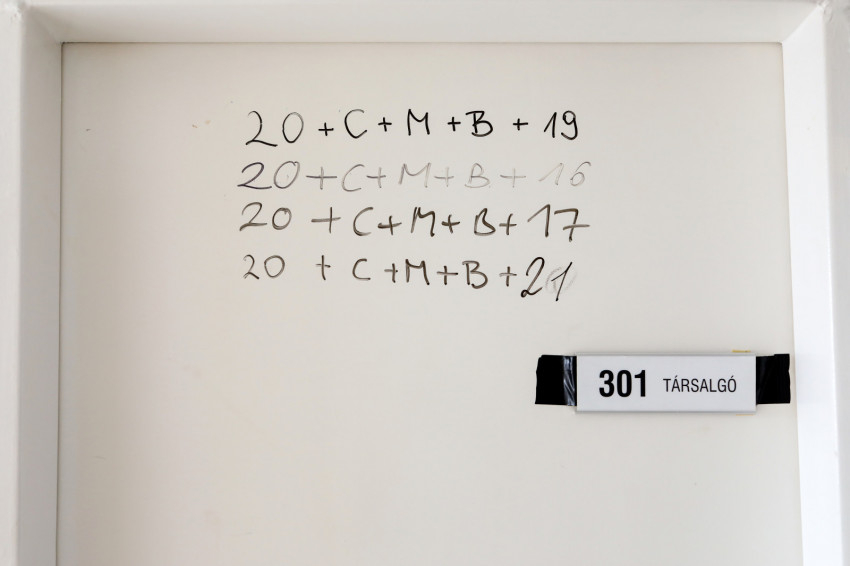 20 + C + M + B + 19
20 + C + M + B + 16
20 + C + M + B + 17
20 + C + M + B + 21
301 TÁRSALGÓ